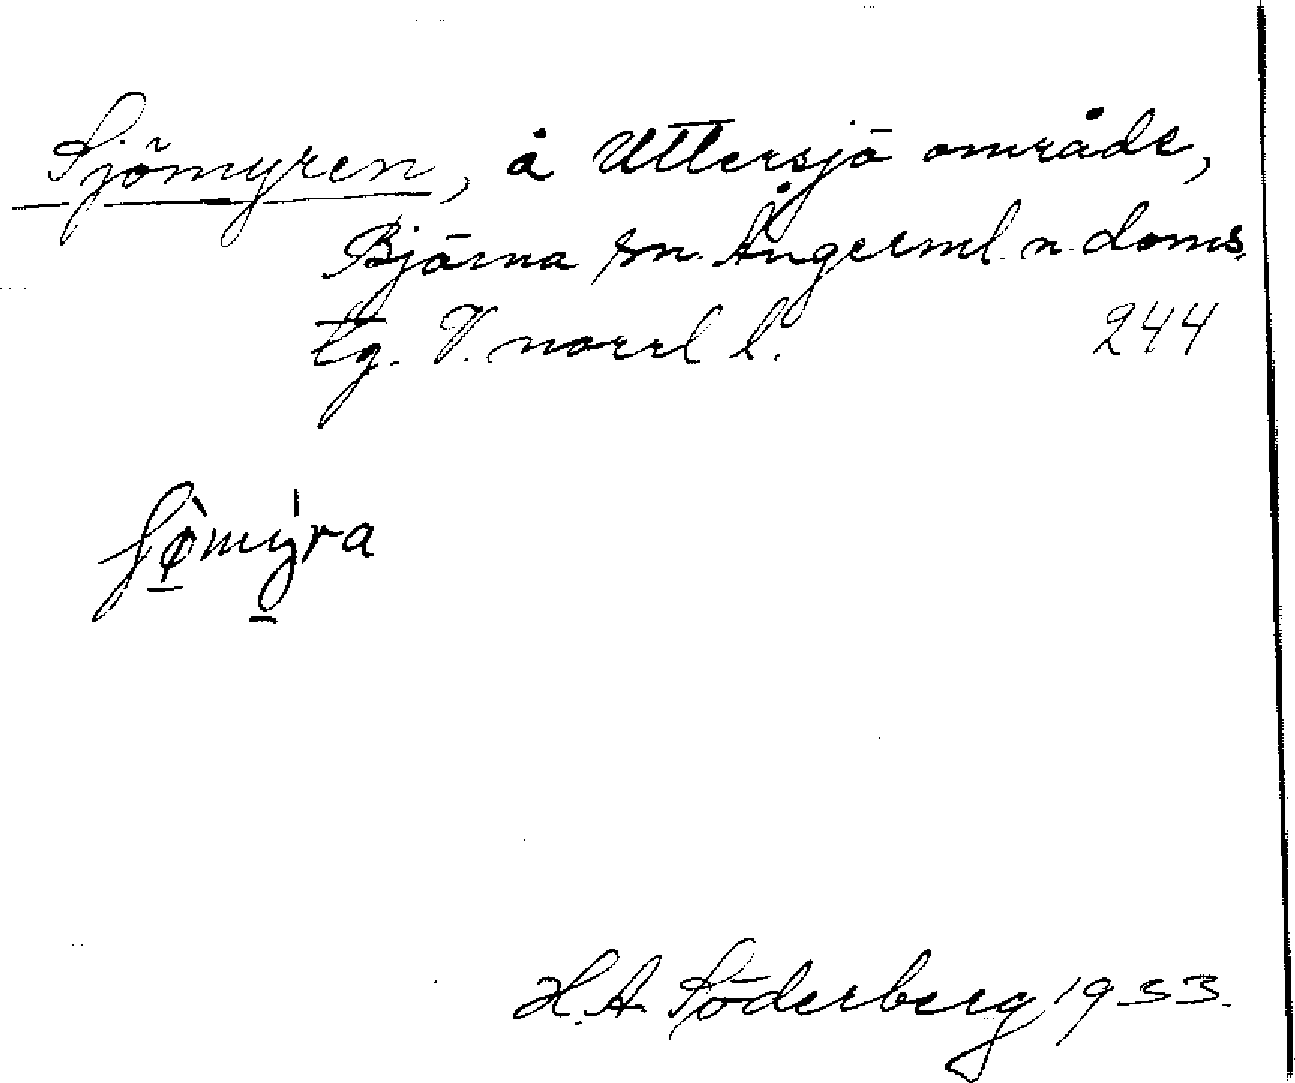 Sjömyren, å Uttersjö område,
Bjärna sn. Ångerml. n. doms.
tg. V. norrl l. 244
ʃø̠̀my̠̍ra
H.A. Söderberg 1933.